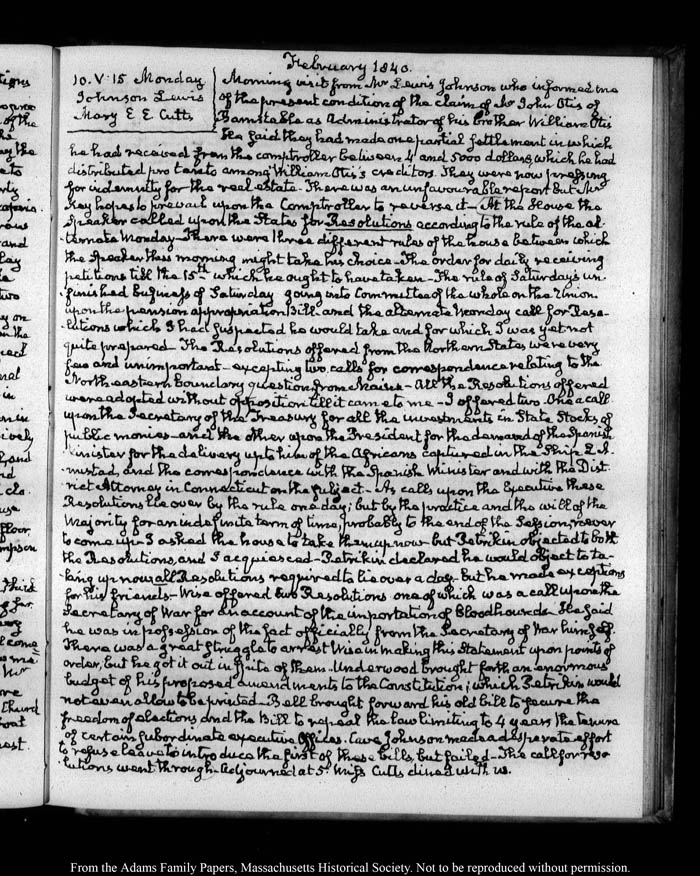 February 1840.
10. V. 15 Monday
Johnson Lewis
Mary E E Cutts
Morning visit from Mr Lewis Johnson who informed me
of the present condition of the claim of Mr John Otis of
Barnstable as Administrator of his brother William Otis
He said they had made one partial settlement in which
he had received from the comptroller between 4 and 5000 dollars, which he had
distributed pro tanto among William Otis's creditors. They were now pressing
for indemnity for the real estate. There was an unfavourable report but Mr
Key hopes to prevail upon the Comptroller to reverse it — At the House the
Speaker called upon the States for Resolutions according to the rule of the al-
ternate Monday — There were three different rules of the house between which
the Speaker this morning might take his choice — The order for daily receiving
petitions till the 15th which he ought to have taken — The rule of Saturday's un-
finished business of Saturday going into Committee of the whole on the Union
upon the pension appropriation Bill — and the alternate Monday call for Reso-
lutions which I had suspected he would take and for which I was yet not
quite prepared — The Resolutions offered from the Northern States were very
few and unimportant — excepting two calls for correspondence relating to the
North eastern boundary question from Maine — All the Resolutions offered
were adopted without opposition till it came to me — I offered two. One a call
upon the Secretary of the Treasury for all the investments in State Stocks, of
public monies — and the other upon the President for the demand of the Spanish
Minister for the delivery up to him of the Africans captured in the Ship L'A-
mistad, and the correspondence with the Spanish Minister and with the Dist-
rict Attorney in Connecticut on the subject — As calls upon the Executive these
Resolutions lie over by the rule one day; but by the practice and the will of the
Majority for an indefinite term of time, probably to the end of the Session, never
to come up — I asked the house to take them up now but Petrikin objected to both
the Resolutions, and I acquiesced — Petrikin declared he would object to ta-
king up now all Resolutions required to lie over a day — but he made exceptions
for his friends — Wise offered two Resolutions one of which was a call upon the
Secretary of War for an account of the importation of Bloodhounds — He said
he was in possession of the fact officially from the Secretary of War himself.
There was a great struggle to arrest Wise in making this statement upon points of
order, but he got it out in spite of them — Underwood brought forth an enormous
budget of his proposed amendments to the Constitution; which Petrikin would
not even allow to be printed — Bell brought forward his old bill to secure the
freedom of elections and the Bill to repeal the law limiting to 4 years the tenure
of certain subordinate executive Offices. Cave Johnson made a desperate effort
to refuse leave to introduce the first of these bills, but failed — The call for reso-
lutions went through — Adjourned at 5. Miss Cutts dined with us.
From the Adams Family Papers, Massachusetts Historical Society. Not to be reproduced without permission.